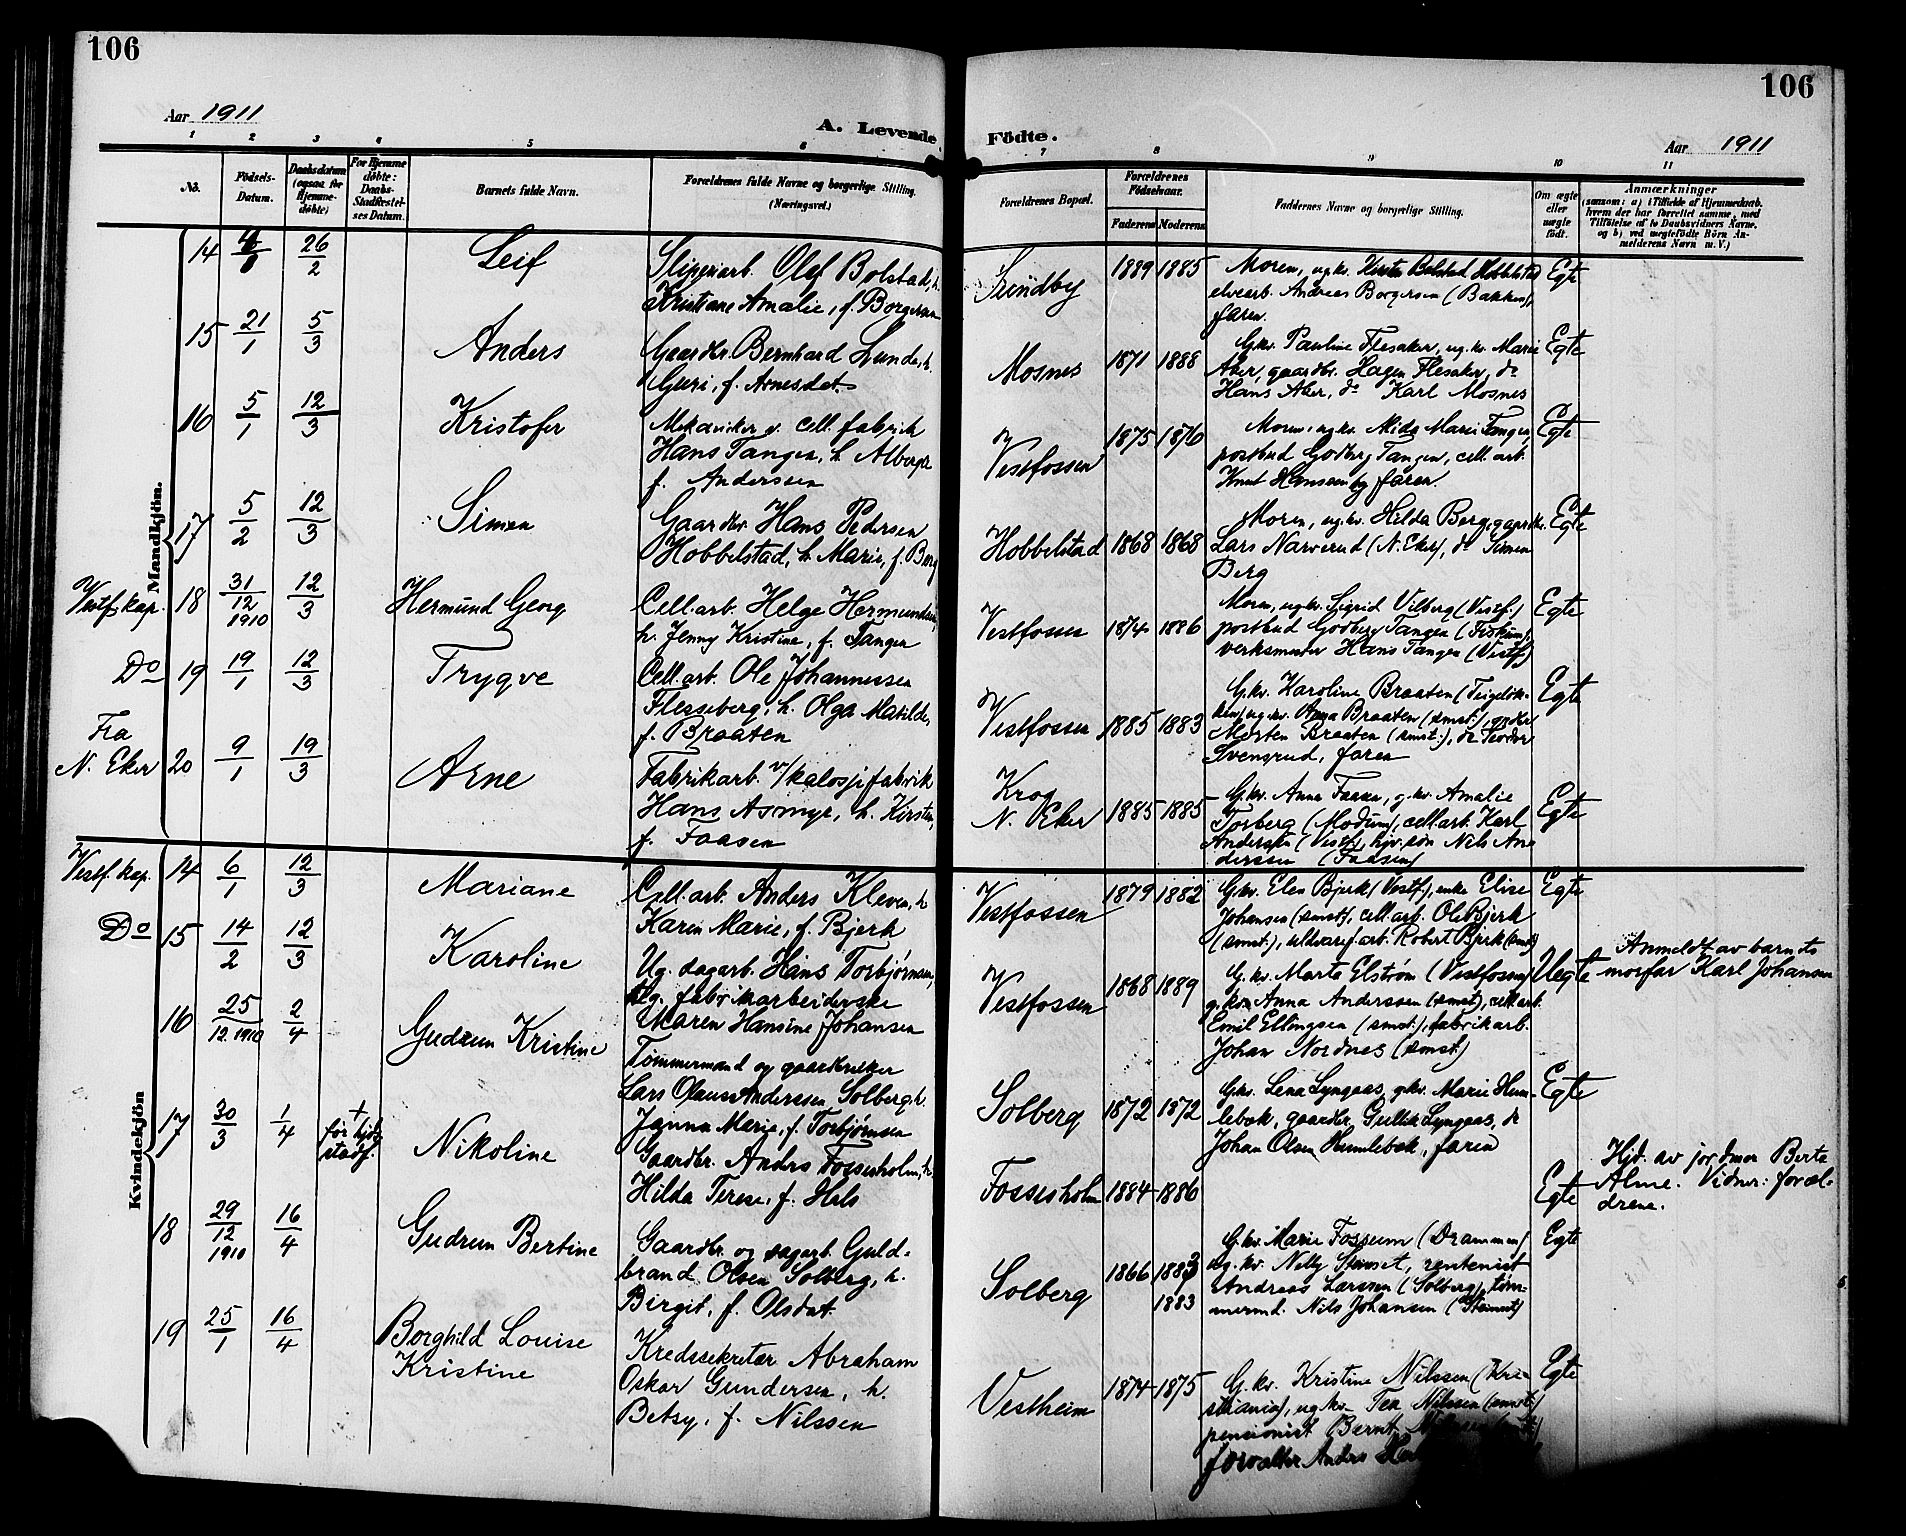 106
Aar 1911
A. Levende
1 2 3 4 5 6
No.
Fødsels-Datum.
Daabsdatum (ogsaa for Hjemme-døbte)
For Hjemme døbte: Daabs-Stadfæstel-ses Datum.
Barnets fulde Navn.
Forældrenes fulde Navne og borgerlige Stilling. (Næringsvei.)
Mandkjön.
14 26/2 Leif
Sliperiarb. Olaf Bolstad, h.
Kristiane Amalie, f. Borgersen
15 21/1 5/3 Anders
Gaardbr. Bernhard Lunde, h.
Guri, f. Arnesdat.
16 5/1 12/3 Kristofer
Mekaniker v. cell. fabrik
Hans Tangen, h.
f. Anderssen
17 5/2 12/3 Simen
Gaardbr. Hans Pedersen
Hobbelstad, h. Marie, f. Berg
Vestf. kap. 18 31/12 1910 12/3 Hermund Georg
Cell. arb. Helge Hermundsen,
h. Jenny Kristine, f. Tangen
Do 19 19/1 12/3 Trygve
Cell. arb. Ole Johannessen
Flesseberg, h. Olga Matilde,
f. Braaten
Fra
N. Eker 20 9/1 19/3 Arne
Fabrikarb. v/kalosjefabrik
Hans Asmyr, h. Kirsten,
f. Faasen
Kvindekjön
Vestf. kap. 14 6/1 12/3 Mariane
Cell. arb. Anders Kleven, h.
Karen Marie, f. Bjerk
Do 15 14/2 12/3 Karoline
Ug. dagarb. Hans Torbjørnsen,
Ug. fabrikarbeiderske
Maren Hansine Johansen
16 25/12 1910 2/4 Gudrun Kristine
Tømmermand og gaardbruker
Lars Olaus Anderssen Solberg, h.
Janna Marie, f. Torbjørnsen
17 30/3 1/4 + før hjd. stadf. Nikoline
Gaardbr. Anders Fossesholm, h.
Hilda Terese, f. Hals
18 29/12 1910 16/4 Gudrun Bertine
Gaardbr. og sagarb. Guld-
brand Olsen Solberg, h.
Birgit, f. Olsdat.
19 25/1 16/4 Borghild Louise
Kristine
Kredssekretær Abraham
Oskar Gundersen, h.
Betsy, f. Nilssen
106
Födte.
Aar 1911
7 8 9 10 11
Forældrenes Bopæl.
Forældrenes Födselsaar.
Faderens Moderens
Faddernes Navne og borgerlige Stilling.
Om ægte eller uægte født.
Anmærkninger
(saasom: a) i Tilfælde af Hjemmedaab.
hvem der har forrettet samme, med
Tilföielse af to Daabsvidners Navne.
og b) ved uegtefödte Börn An-
melderens Navn m. V.)
Sundby 1889 1885
Moren, ug.kv. Bolstad Hobbelstad
elvearb. Andreas Borgersen (Bakken),
faren.
Egte
Mosnes 1871 1888
G.kv. Pauline Flesaker, ug.kv. Marie
Aker, gaardbr. Hagen Flesaker, do
Hans Aker, do Karl Mosnes
Egte
Vestfossen 1875 1876
Moren, ug.kv. Marie Tangen,
postbud Godberg Tangen, cell. arb.
Knut Hanssen og faren.
Egte
Hobbelstad 1868 1868
Moren, ug.kv. Hilda Berg,
Lars Narverud (N. Eker), do Simen
Berg
Egte
Vestfossen 1874 1886
Moren, ug.kv. Sigrid Vilberg (Vestf.)
postbud Godberg Tangen (Fiskum),
verksmester Hans Tangen (Vestf.)
Egte
Vestfossen 1885 1883
G.kv. Karoline Braaten
ug.kv. Anna Braaten (smst.),
Morten Braaten (smst.), do Teodor
Svensrud, faren
Egte
Krog
N. Eker 1885 1885
G.kv. Anna Faasen, g.kv. Amalie
Torberg (Modum), cell. arb. Karl
Anderssen (Vestf.), hjv. søn Nils An-
derssen (Faasen)
Egte
Vestfossen 1879 1882
G.kv. Elen Bjerk (Vestf.), enke Elise
Johansen (smst), cell. arb. Ole Bjerk
(smst.), arb. Robert Bjerk (smst)
Egte
Vestfossen 1868 1889
G.kv. Marte Elstrøm (Vestfossen)
g.kv. Anna Anderssen (smst), cell. arb.
Emil Ellingsen (smst.), fabrikarb.
Johan Nordnes (smst.)
Uegte
Anmeldt av barnets
morfar Karl Johansen
Solberg 1872 1872
G.kv. Lena Lyngaas, g.kv. Marie Hum-
lebæk, gaardbr. Gullik Lyngaas, do
Johan Olsen Humlebæk, faren
Egte
Fossesholm 1884 1886
Egte
Hjd. av jordmor Berta
Alme. Vidner: foræl-
drene.
Solberg 1866 1883
1883
G.kv. Marie Fosseum (Drammen)
ug.kv. Nelly Stenset, rentenist
Andreas Larssen (Solberg), tøm-
mermd. Nils Johansen (Stenset)
Egte
Vestheim 1874 1875
G.kv. Kristine Nilssen (Kri-
stiania), ug.kv. Tea Nilssen (smst.)
pensionist Bernt Nilssen
forvalter Anders
Egte